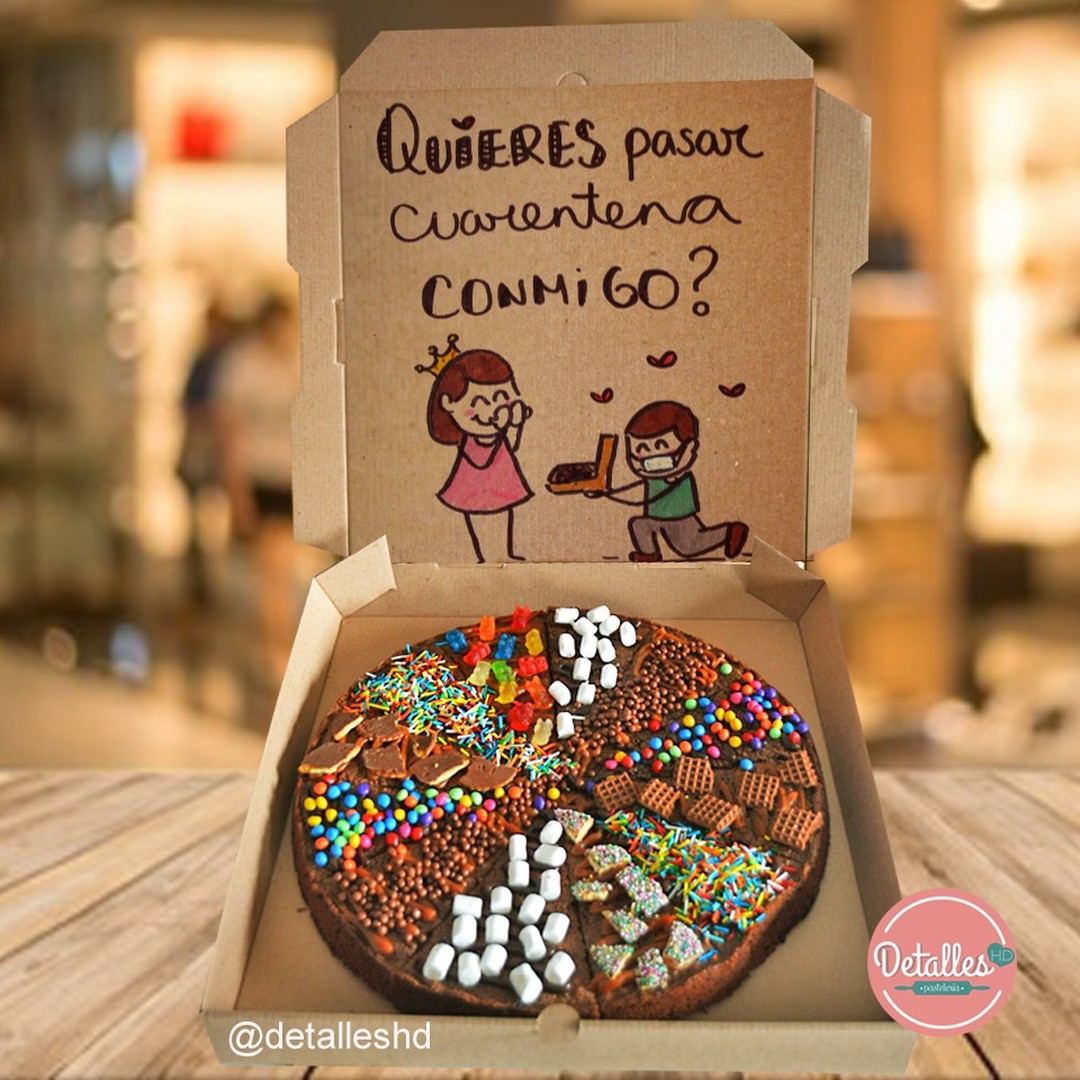 QUiERES pasar
cuarentena
CONMiGO?
Detalles HD
• pastelería •
@detalleshd